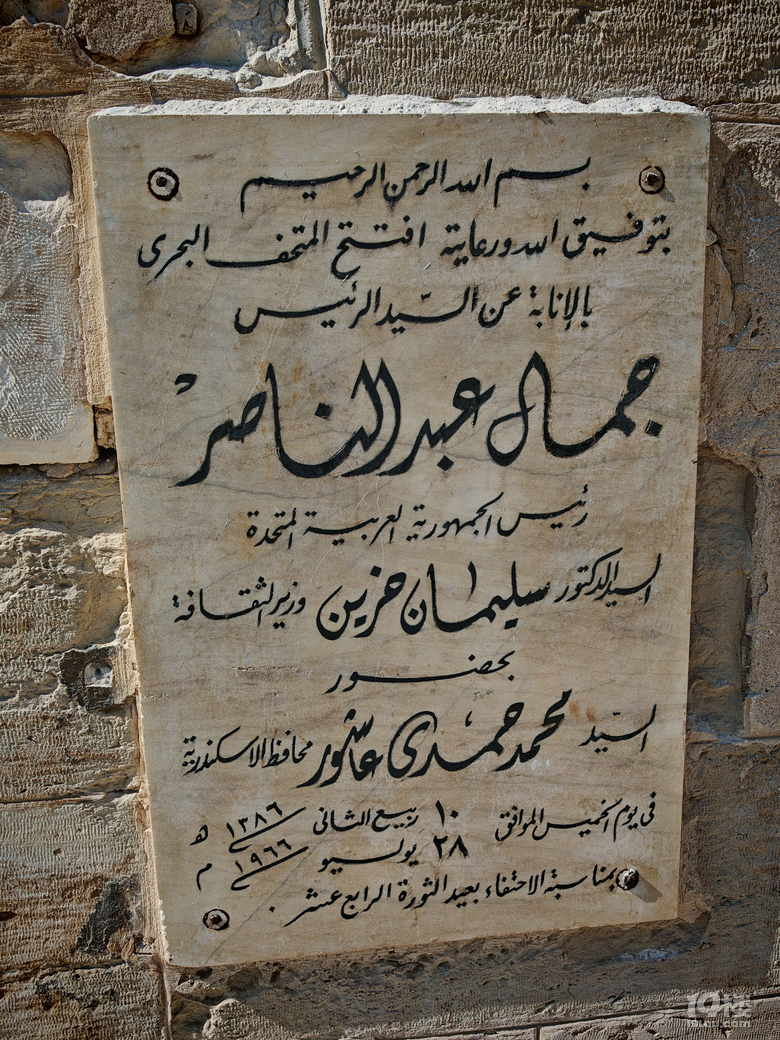 بسم الله الرحمن الرحيم
بتوفيق الله ورعايته افتتح المتحف البحرى
بالإنابة عن السّيد الرئيس
جمال عبد الناصر
رئيس الجمهورية العربية المتحدة
السيد الدكتور سليمان حزين وزير الثقافة
بحضور
السيّد محمد حمدى عاشور محافظ الاسكندرية
فى يوم الخميس الموافق ١٠ ربيع الثانى ١٣٨٦ هـ
٢٨ يوليو ١٩٦٦ م
بمناسبة الاحتفاء بعيد الثورة الرابع عشر .